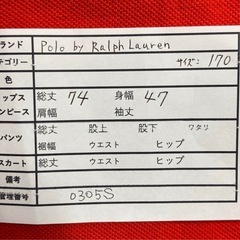 ランド Polo by Ralph Lauren
テゴリー サイズ: 170
色
ップス 総丈 74 身幅 47
ンピース 肩幅 袖丈
パンツ 総丈 股上 股下 ワタリ
裾幅 ウエスト ヒップ
スカート 総丈 ウエスト ヒップ
備考
管理番号 0305S